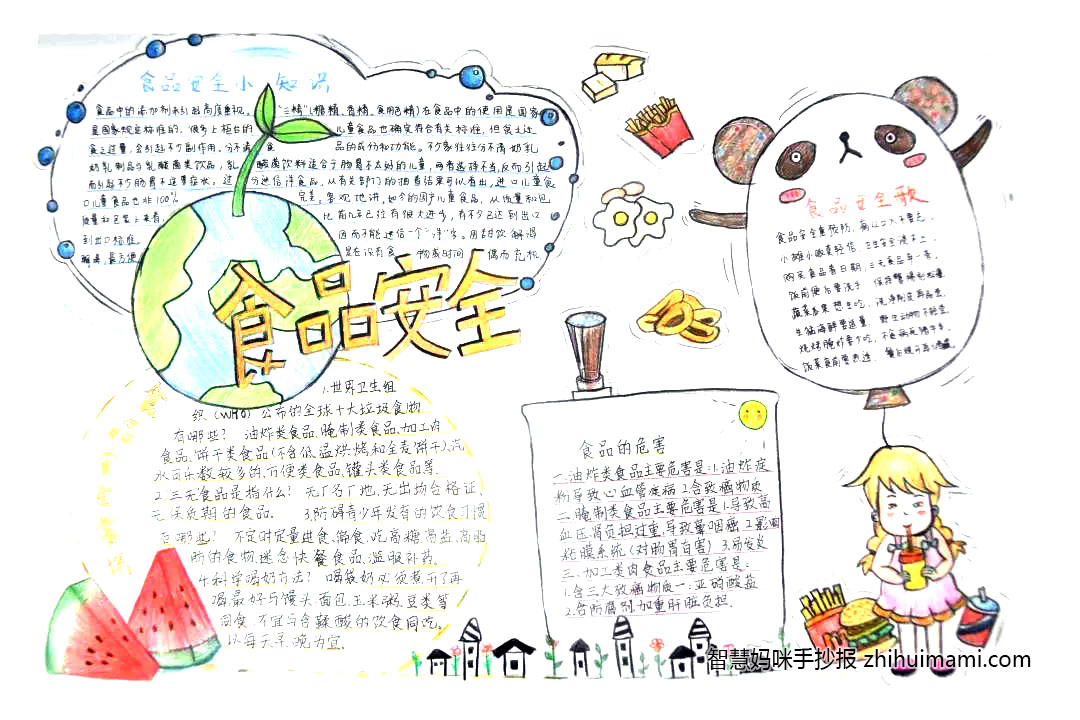 食品安全小知识
食品中的添加剂未引起高度重视。"三精"(糖精、香精、食用色精)在食品中的使用是国家
是国家规定标准的,很多上柜台的儿童食品也确实符合有关标准,但食之过
食之过量,会引起不少副作用。分不清食品的成份和功能。不少家长往往分不清奶乳
奶乳制品与乳酸菌类饮品,乳酸菌饮料适合于肠胃不太好的儿童,两者选择不当,反而引起
而引起不少肠胃不适等症状。过分迷信洋食品,从有关部门的抽查结果可以看出,进口儿童食
口儿童食品也非100%完美。客观地讲,如今的国产儿童食品,从质量和包
质量和包装上来看,比前几年已经有很大进步,有不少已达到出口
到出口标准 因而不能迷信一个"洋"字。用甜饮解渴
是在没有食 物或时间 偶而充机
食品安全
1.世界卫生组
织(WHO)公布的全球十大垃圾食物
有哪些? 油炸类食品、腌制类食品、加工肉
食品、饼干类食品(不含低温烘烤和全麦饼干)、汽
水可乐、方便类食品、罐头类食品等.
2.三无食品是指什么? 无厂名厂地、无出场合格证、
无保质期的食品. 3.防碍青少年发育的饮食习惯
有哪些? 不定时定量进食、偏食、吃高糖、高盐、高脂
肪的食物、迷恋快餐食品、滥服补药.
4.科学喝奶方法? 喝袋奶必须煮开了再
喝,最好与馒头、面包、玉米粥、豆类等
同食.不宜与含鞣酸的饮食同吃,
以每天早、晚为宜.
食品的危害
一.油炸类食品主要危害是:1.油炸淀
粉导致心血管疾病 2.含致癌物质
二.腌制类食品主要危害是 1.导致高
血压肾负担过重,导致鼻咽癌 2.影响
粘膜系统(对肠胃有害) 3.易发炎
三.加工类肉食品主要危害是:
1.含三大致癌物质一:亚硝酸盐
2.含防腐剂加重肝脏负担.
食品安全歌
食品安全重预防,病从口入不要忘。
小摊小贩莫轻信 卫生安全
购买食品看日期,三无食品
饭前便后要洗手
蔬菜瓜果想生吃,洗净削皮再品尝。
生猛海鲜要适量,野生动物不能尝。
烧烤腌炸要少吃,不食病死猪牛羊。
饭菜食前要煮透
智慧妈咪手抄报 zhihuimami.com